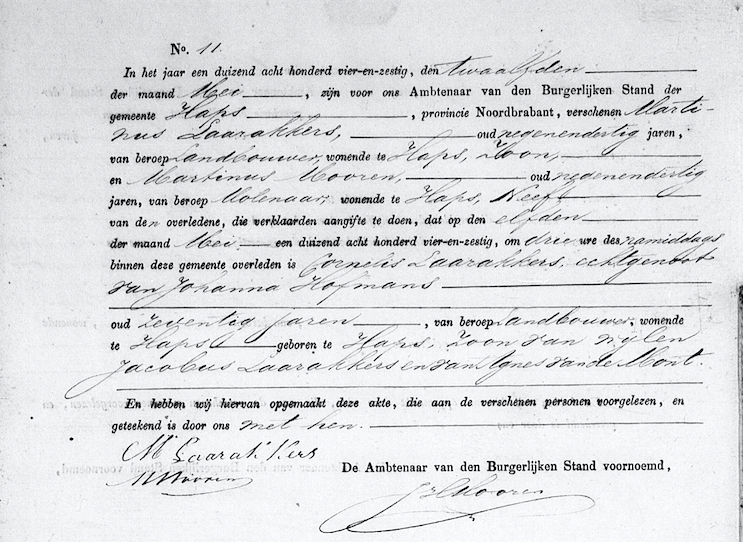 No. 11.
In het jaar een duizend acht honderd vier-en-zestig, den twaalfden
der maand Mei, zijn voor ons Ambtenaar van den Burgerlijken Stand der
gemeente Haps, provincie Noordbrabant, verschenen Marti-
nus Laarakkers, oud negenendertig jaren,
van beroep Landbouwer, wonende te Haps, Zoon,
en Martinus Mooren, oud negenendertig
jaren, van beroep Molenaar, wonende te Haps, Neef
van den overledene, die verklaarden aangifte te doen, dat op den elfden
der maand Mei een duizend acht honderd vier-en-zestig, om drie ure des namiddags
binnen deze gemeente overleden is Cornelis Laarakkers, echtgenoot
van Johanna Hofmans
oud zeventig jaren, van beroep Landbouwer, wonende
te Haps geboren te Haps, Zoon van wylen
Jacobus Laarakkers en van Agnes van de Mont.
En hebben wij hiervan opgemaakt deze akte, die aan de verschenen personen voorgelezen, en
geteekend is door ons met hen.
M Laarakkers
De Ambtenaar van den Burgerlijken Stand voornoemd,
M Mooren
Mooren